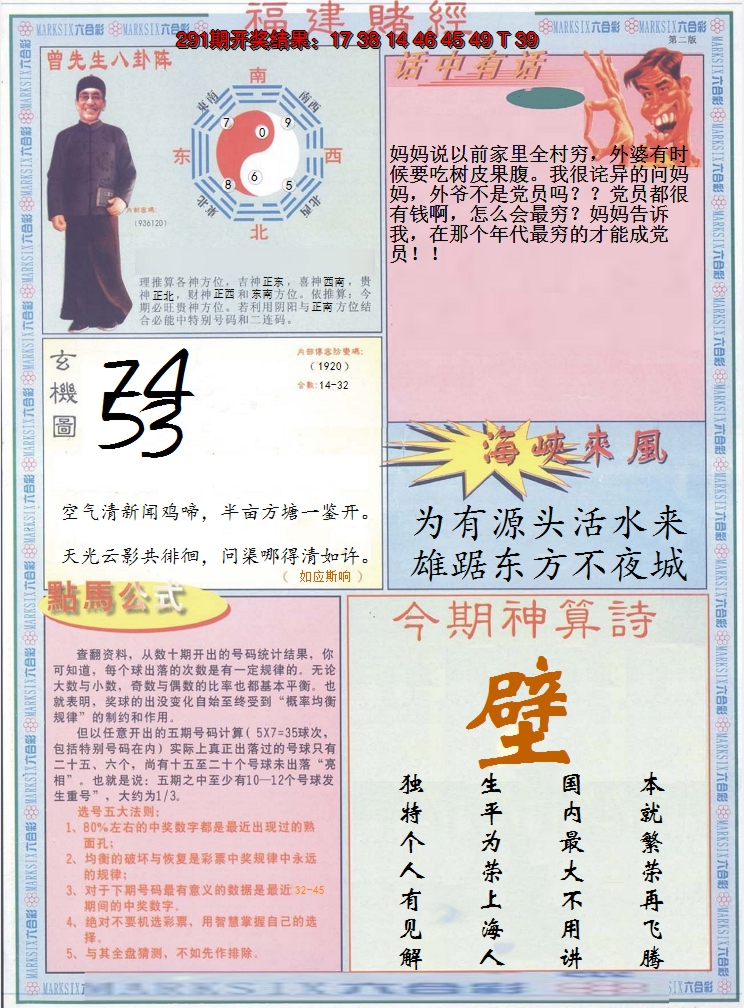 福建賭經
291期开奖结果：17 38 14 46 45 49 T 39
第二版
曾先生八卦陈
南
东南
西南
7
0
9
东
西
8
6
5
東北
西北
北
内部密碼:
(936120)
理推算各神方位，吉神正东，喜神西南，贵
神正北，财神正西和东南方位。依推算：今
期必旺贵神方位。若利用阴阳与正南方位结
合必能中特别号码和二连码。
话中有话
妈妈说以前家里全村穷，外婆有时
候要吃树皮果腹。我很诧异的问妈
妈，外爷不是党员吗？？党员都很
有钱啊，怎么会最穷？妈妈告诉
我，在那个年代最穷的才能成党
员！！
玄機圖
74
53
(1920)
合數:14-32
空气清新闻鸡啼，半亩方塘一鉴开。
天光云影共徘徊，问渠哪得清如许。
（ 如应斯响 ）
海峽來風
为有源头活水来
雄踞东方不夜城
點馬公式
查翻资料，从数十期开出的号码统计结果，你
可知道，每个球出落的次数是有一定规律的。无论
大数与小数，奇数与偶数的比率也都基本平衡。也
就表明，奖球的出没变化自始至终受到“概率均衡
规律”的制约和作用。
但以任意开出的五期号码计算( 5X7=35球次，
包括特别号码在内) 实际上真正出落过的号球只有
二十五、六个，尚有十五至二十个号球未出落“亮
相”。也就是说：五期之中至少有10—12个号球发
生重号”，大约为1/3。
选号五大法则：
1、80%左右的中奖数字都是最近出现过的熟
面孔；
2、均衡的破坏与恢复是彩票中奖规律中永远
的规律；
3、对于下期号码最有意义的数据是最近 32-45
期间的中奖数字。
4、绝对不要机选彩票，用智慧掌握自己的选
择。
5、与其全盘猜测，不如先作排除。
今期神算詩
壁
独特个人有见解
生平为荣上海人
国内最大不用讲
本就繁荣再飞腾
MARKSIX六合彩